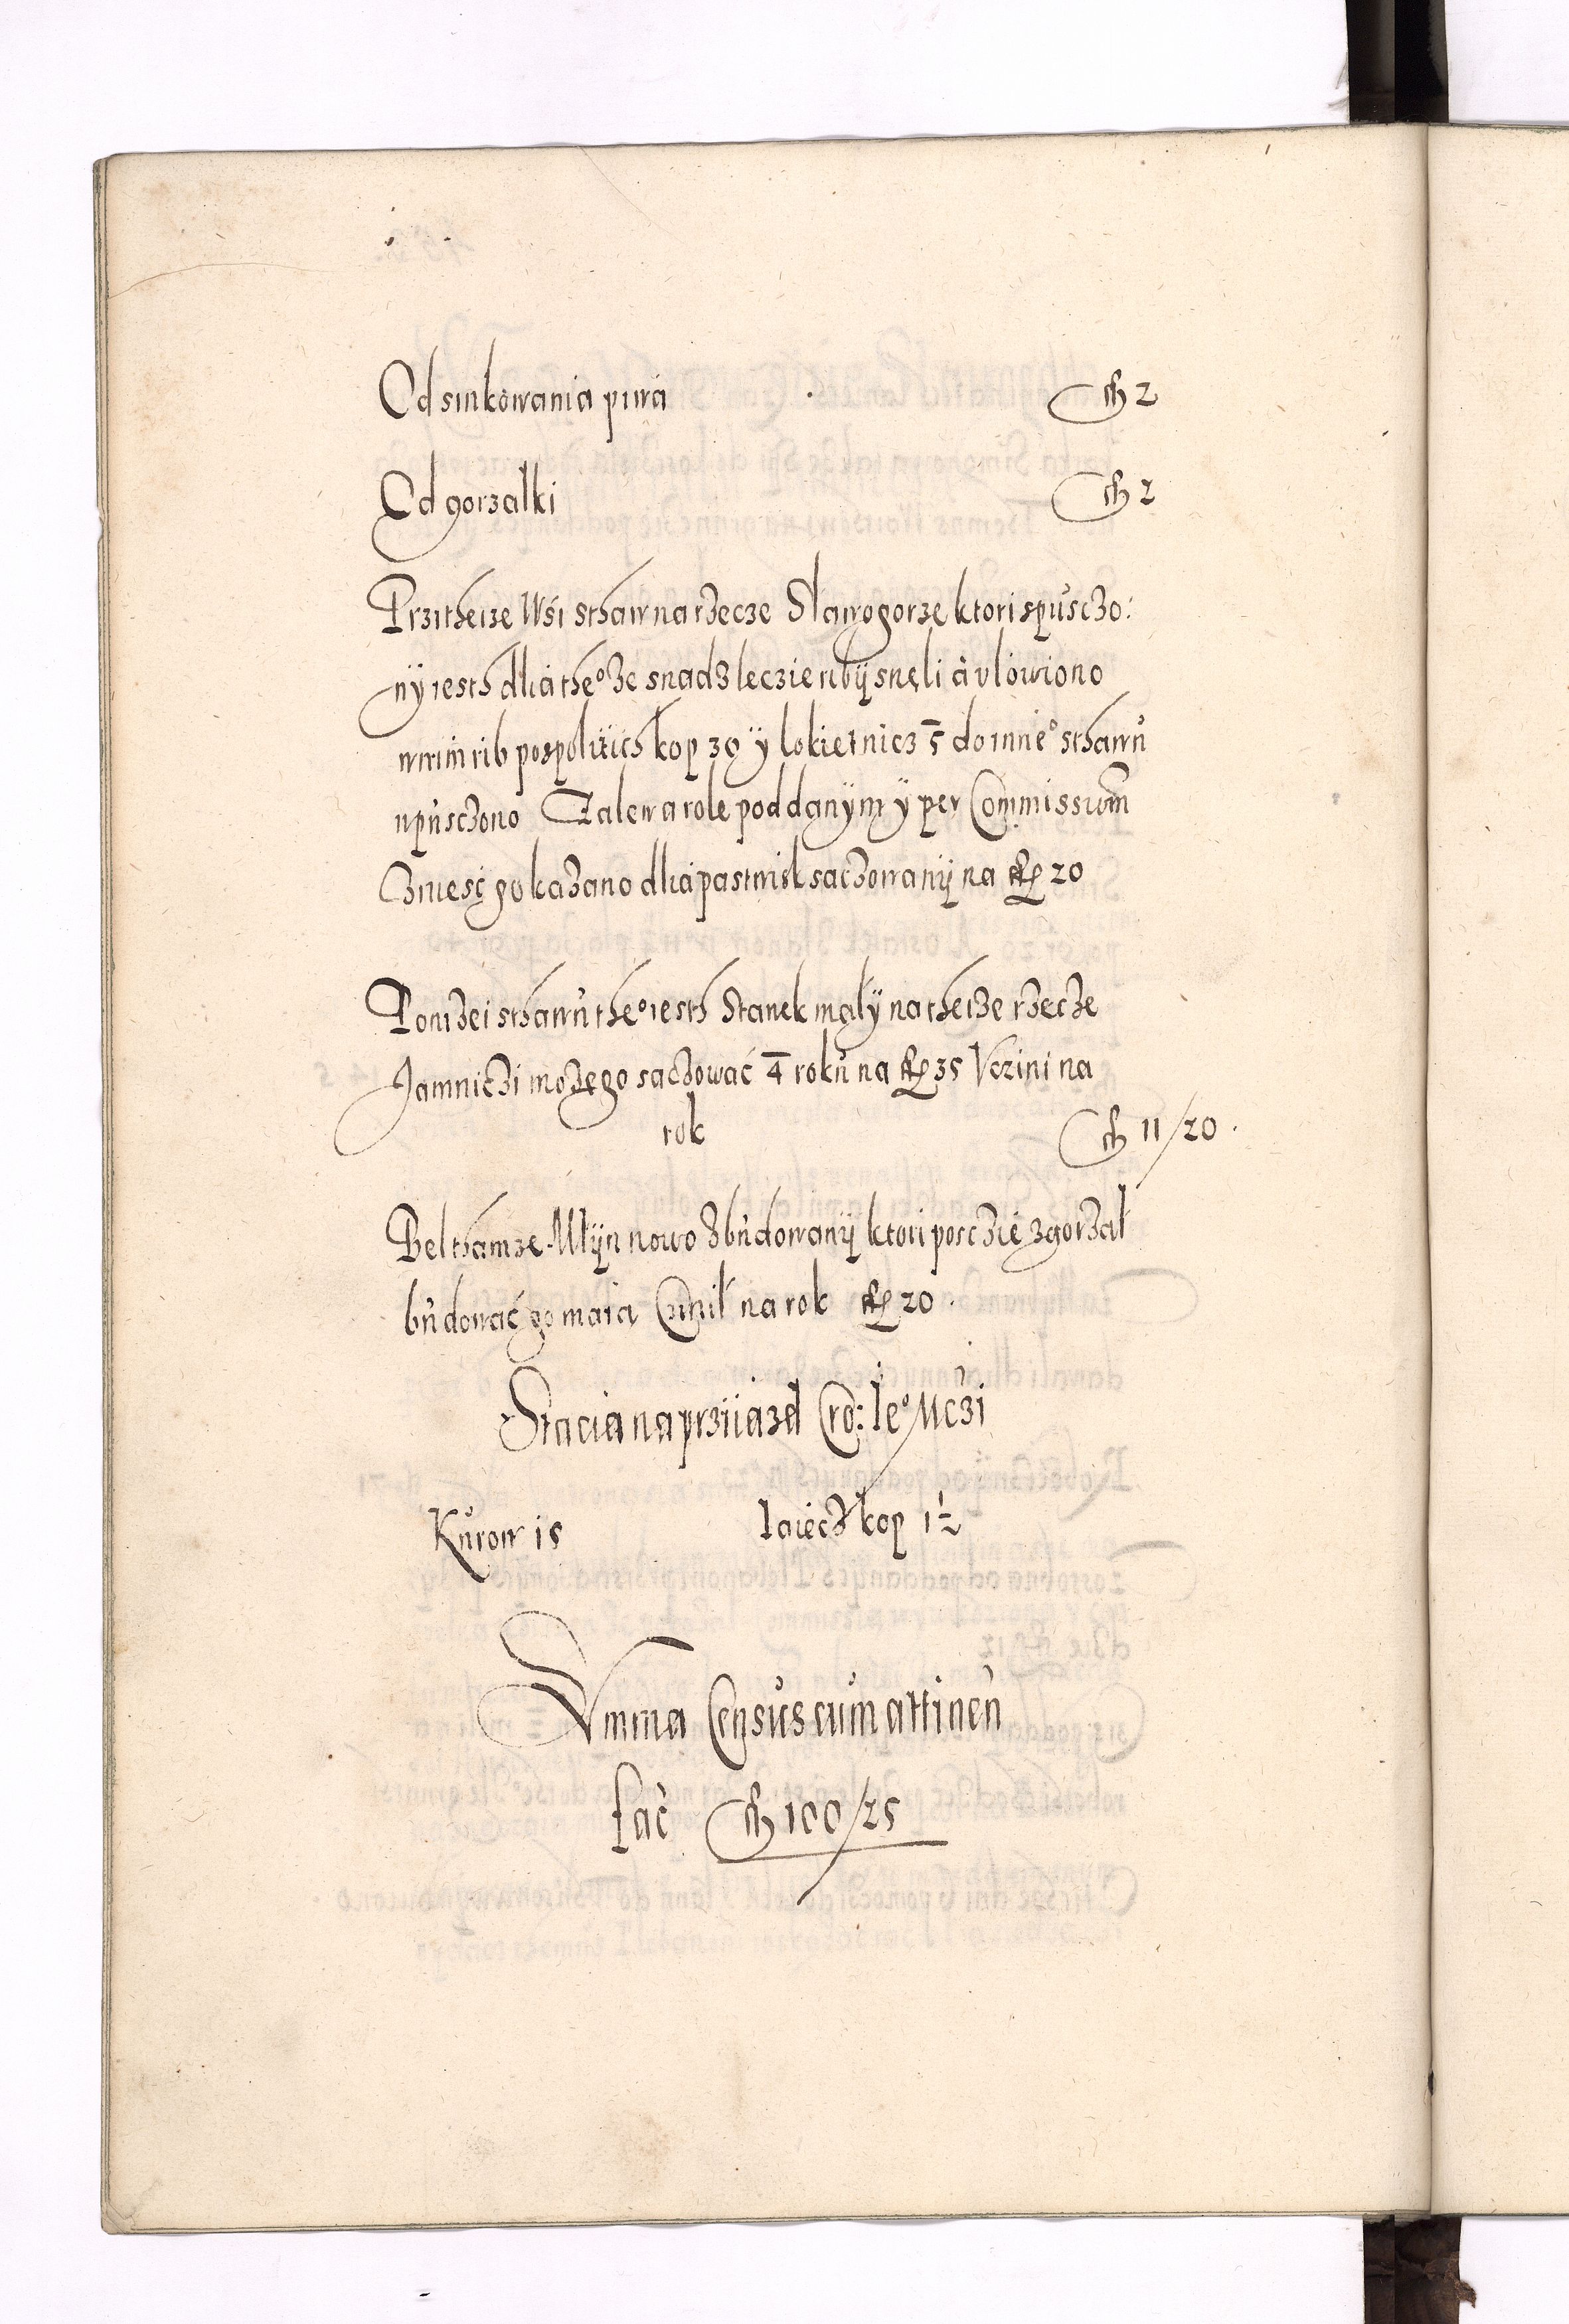 Od sinkowania piwa fl 2
Od gorzalki fl 2
Przitheize Wśi sthaw na rzecze Slawogorze ktori spusczo:
ny iesth dlia the° ze snadz leczie ribÿ snęli á vlowiono
w nim rib pospolitich kop 39 ÿ lokietnicz 5 do inne° sthawu
wpusczono Zalewa role poddanÿm ÿ per Commissiom̃
Znieść go kazano dlia pastwisk saczowanÿ na fl 20
Ponizei sthawu the° iesth Stanek małÿ na theize rzecze
Jamniczi może go saczować 4 roku na fl 35 Vczini na
rok fl 11/20
Bel thamze Młÿn nowo zbudowanÿ ktori posczie zgorzał
budować go maia Czinił na rok fl 20
Stacia na prziiazd Cro: Ie° Mczi
Kurow 15 Iaiecz kop 1½
Summa Census cum attinen
fac fl 100/25